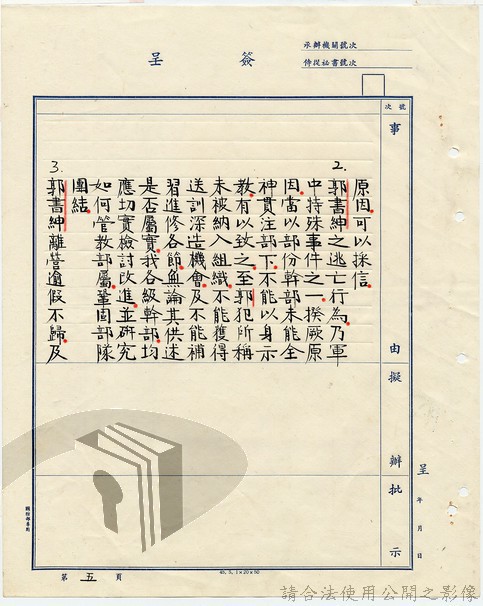 簽呈
承辦機關號次
侍從祕書號次
號次
事由
擬辦
批示
呈 年 月 日
原因可以採信
2.郭書紳之逃亡行為乃軍
中特殊事件之一揆厥原
因當以部份幹部未能全
神貫注部下不能以身示
教有以致之至郭犯所稱
未被納入組織不能獲得
送訓深造機會及不能補
習進修各節無論其供述
是否屬實我各級幹部均
應切實檢討改進並研究
如何管教部屬鞏固部隊
團結
3.郭書紳離營逾假不歸及
第五頁
45. 5. 1×20×50
請合法使用公開之影像